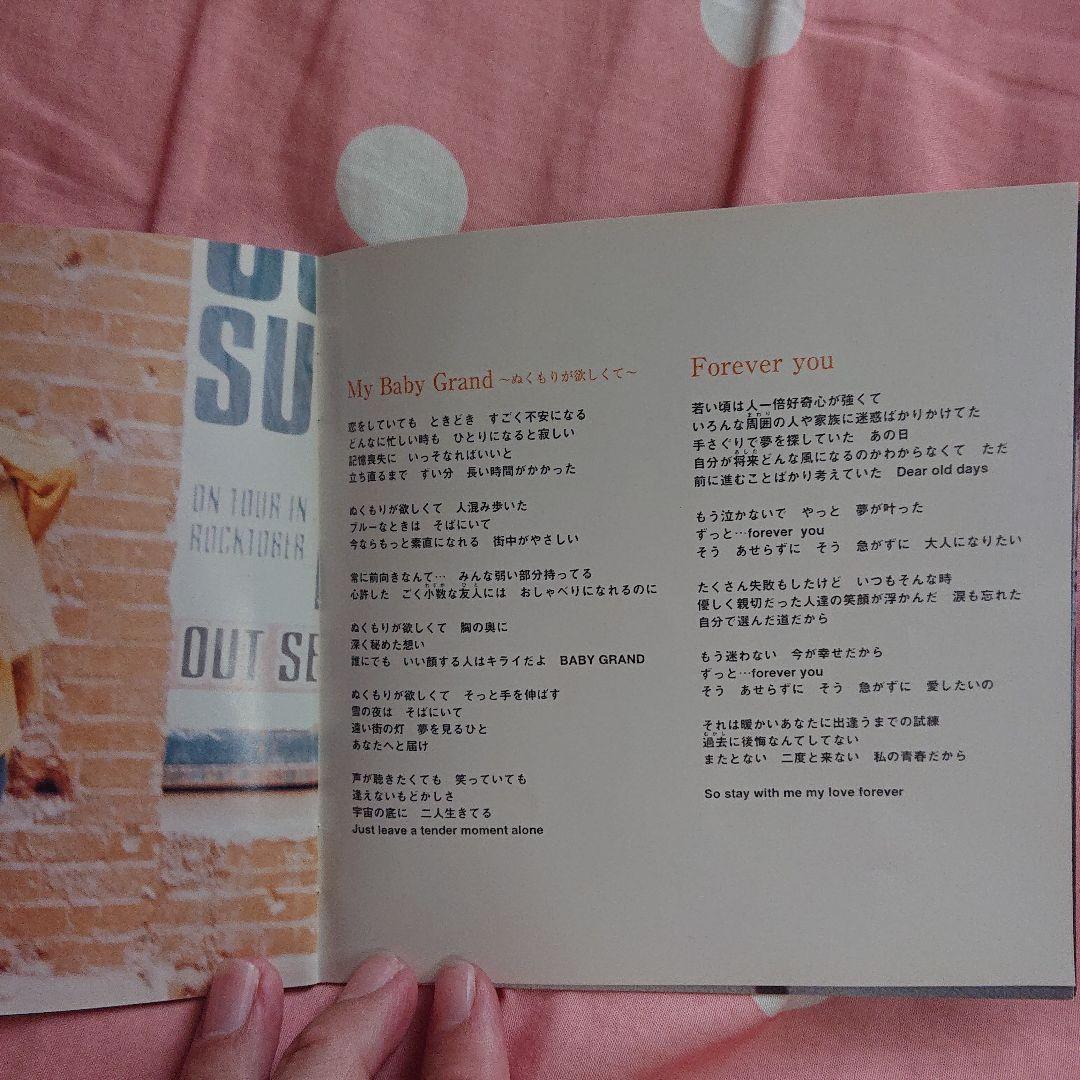 SU
ON TOUR IN
ROCKTOBER
OUT SE
My Baby Grand ～ぬくもりが欲しくて～
恋をしていても　ときどき　すごく不安になる
どんなに忙しい時も　ひとりになると寂しい
記憶喪失に　いっそなればいいと
立ち直るまで　ずい分　長い時間がかかった
ぬくもりが欲しくて　人混み歩いた
ブルーなときは　そばにいて
今ならもっと素直になれる　街中がやさしい
常に前向きなんて…　みんな弱い部分持ってる
わずか　ひと
心許した　ごく小数な友人には　おしゃべりになれるのに
ぬくもりが欲しくて　胸の奥に
深く秘めた想い
誰にでも　いい顔する人はキライだよ　BABY GRAND
ぬくもりが欲しくて　そっと手を伸ばす
雪の夜は　そばにいて
遠い街の灯　夢を見るひと
あなたへと届け
声が聴きたくても　笑っていても
逢えないもどかしさ
宇宙の底に　二人生きてる
Just leave a tender moment alone
Forever you
若い頃は人一倍好奇心が強くて
まわり
いろんな周囲の人や家族に迷惑ばかりかけてた
手さぐりで夢を探していた　あの日
あした
自分が将来どんな風になるのかわからなくて　ただ
前に進むことばかり考えていた　Dear old days
もう泣かないで　やっと　夢が叶った
ずっと…forever you
そう　あせらずに　そう　急がずに　大人になりたい
たくさん失敗もしたけど　いつもそんな時
優しく親切だった人達の笑顔が浮かんだ　涙も忘れた
自分で選んだ道だから
もう迷わない　今が幸せだから
ずっと…forever you
そう　あせらずに　そう　急がずに　愛したいの
それは暖かいあなたに出逢うまでの試練
むかし
過去に後悔なんてしてない
またとない　二度と来ない　私の青春だから
So stay with me my love forever